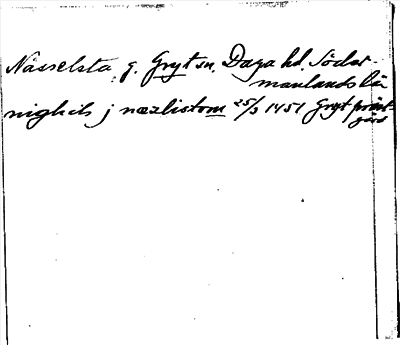 Nässelsta, g. Gryt sn, Daga hd. Söder-
manlands län
nighols j næzlistom 25/3 1451 Gryt präst-
gård